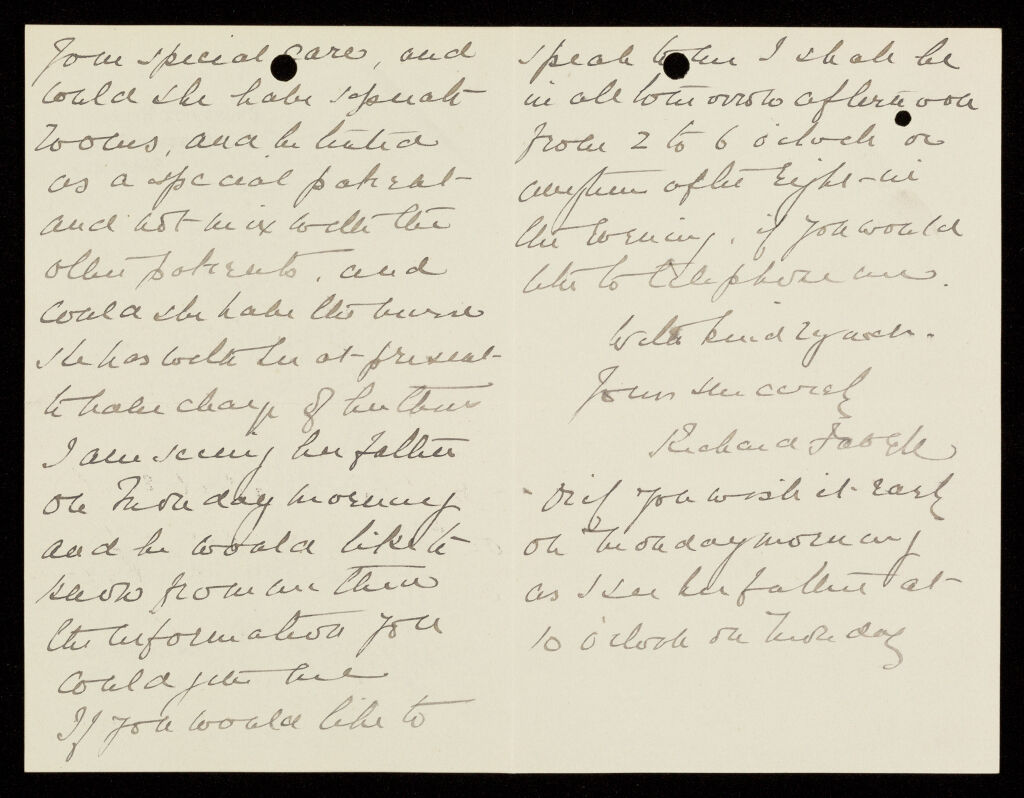 Your special care, and
could she have separate
rooms, and be treated
as a special patient
and not mix with the
other patients, and
could she have the nurse
she has with her at present
to take charge of her there
I am seeing her father
on Monday morning
and he would like to
know from me then
the information you
could give me
If you would like to
speak to me I shall be
in all tomorrow afternoon
from 2 to 6 o'clock or
anytime after Eight in
the Evening, if you would
like to telephone me.
With kind regards.
Yours sincerely
Richard
- or if you wish it early
on Monday morning
as I see her father at
10 o'clock on Monday